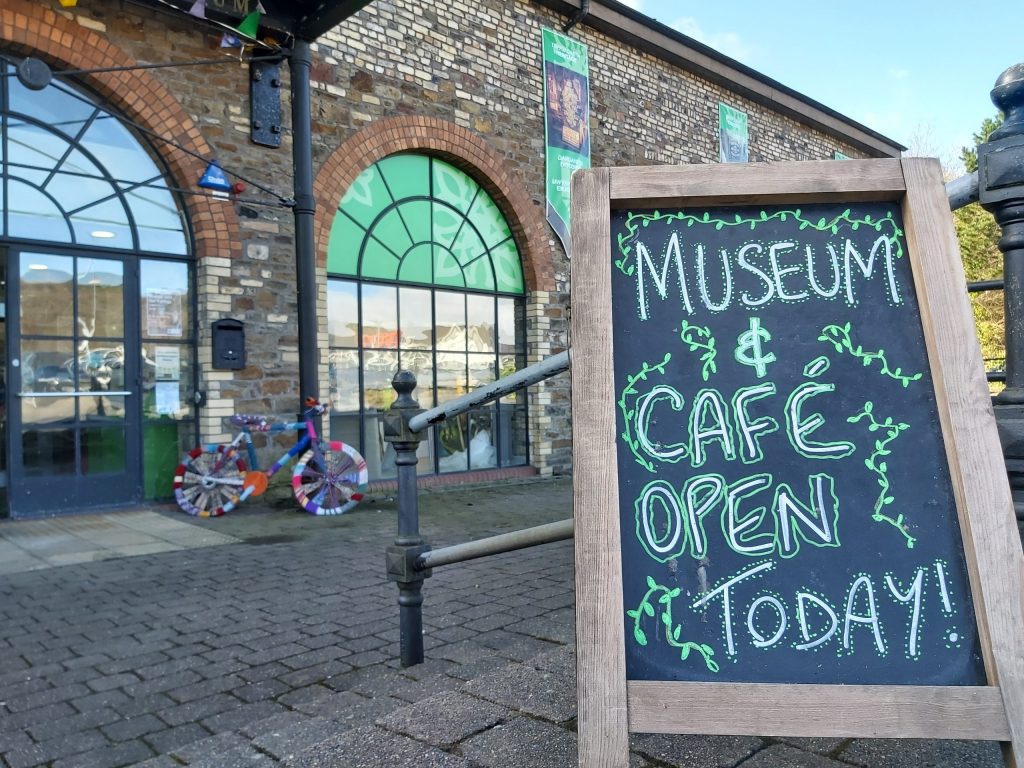 MUSEUM
&
CAFÉ
OPEN
TODAY!